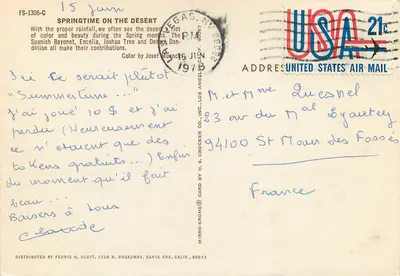 FS-1306-C
15 Juin
SPRINGTIME ON THE DESERT
With the proper rainfall, we often see the desert riot
of color and beauty during the Spring months. The
Spanish Bayonet, Encelia, Joshua Tree and Desert Dan-
delion all make their contributions.
Color by Josef Muench
Ici ce serait plutôt
"Summertime ..."
J'ai joué 10 $ et j'ai
perdu (Heureusement
ce n'étaient que des
tokens gratuits...) Enfin
du moment qu'il fait
beau...
Baisers à tous
Claude
DISTRIBUTED BY FERRIS H. SCOTT, 1530 N. BROADWAY, SANTA ANA, CALIF., 92612
MIRRO-KROME® CARD BY H. S. CROCKER CO., INC., LOS ANGELES
VEGAS, NV
PM
16 JUN
USA 21c
UNITED STATES AIR MAIL
ADDRESS
M. et Mme Quesnel
53 rue du Mal Lyautey
94100 St Maur des Fossés
France